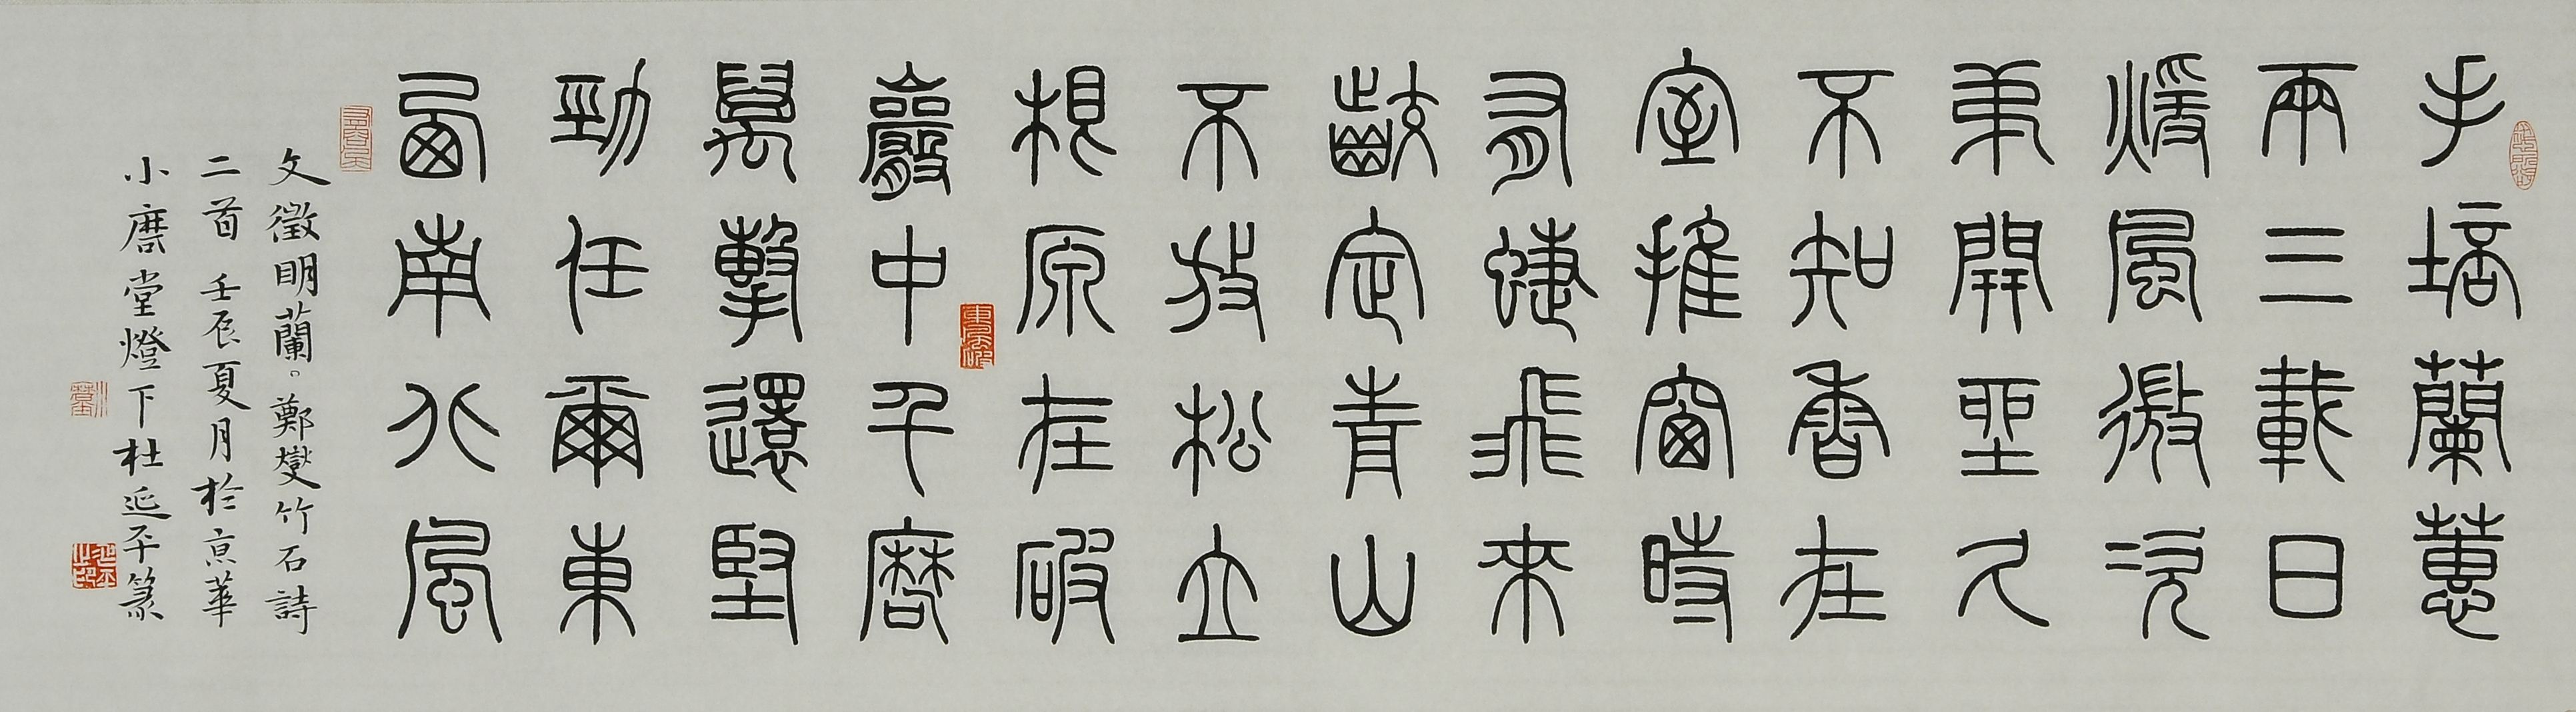 手培蘭蕙
兩三載日
煖風微次
弟開坐久
不知香在
室推窗時
有蜨飛來
齩定青山
不放松立
根原在破
巖中千磨
萬擊還堅
勁任爾東
西南北風
文徵明蘭。鄭燮竹石詩
二首 壬辰夏月於京華
小磨堂燈下杜延平篆
延平之印